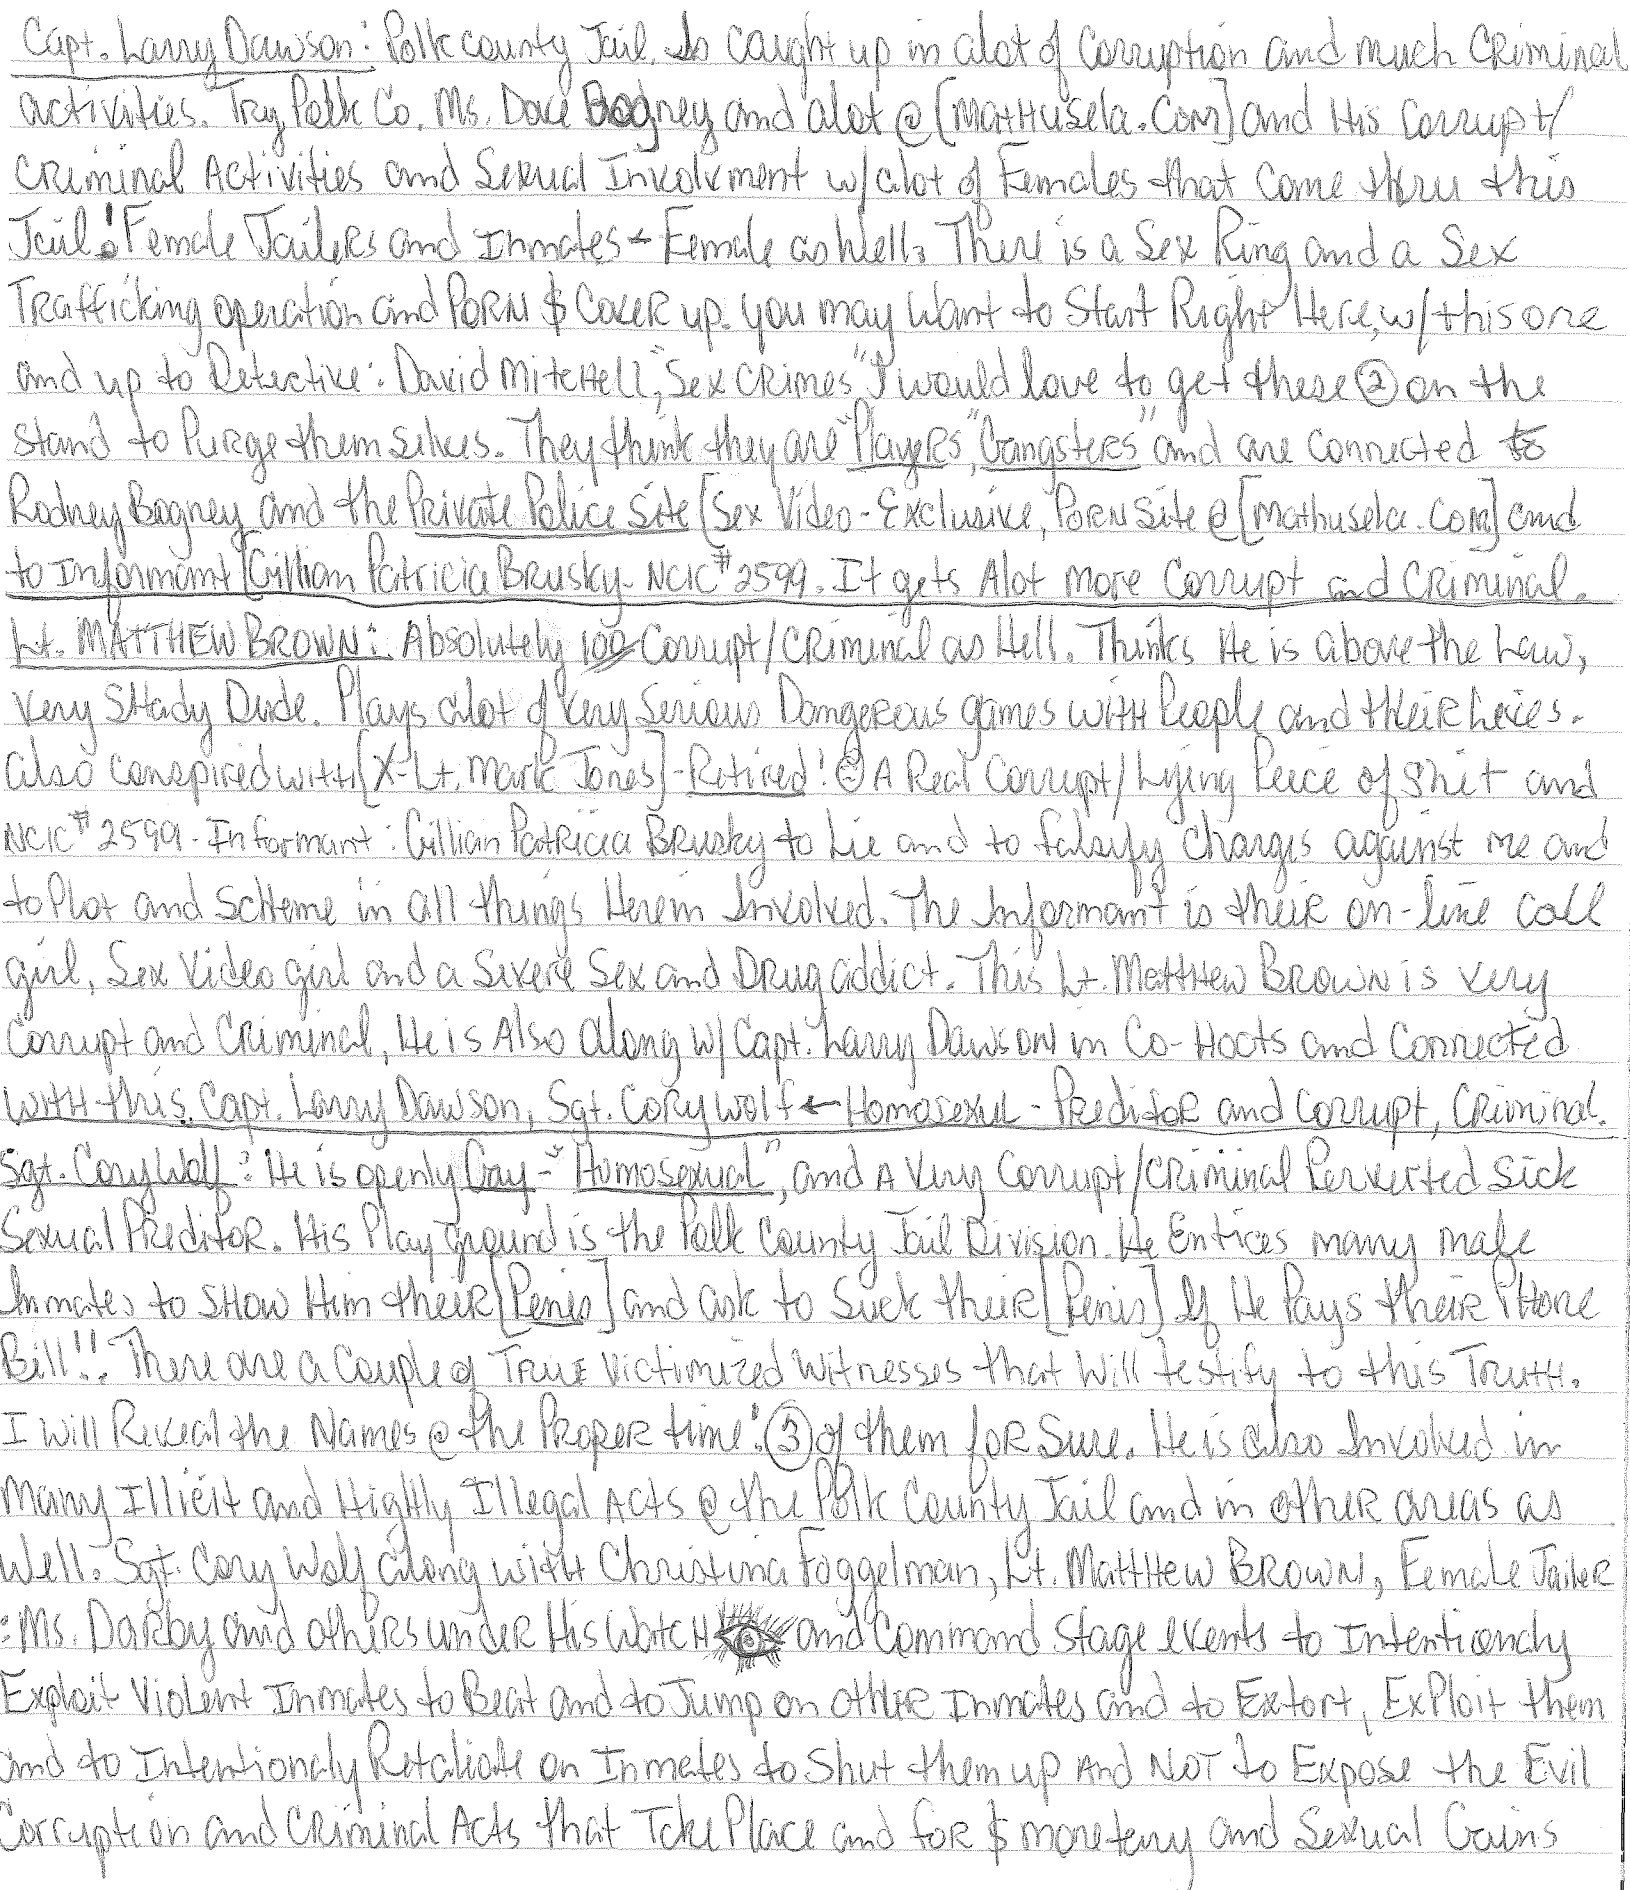 Capt. Larry Dawson: Polk County Jail. Is caught up in alot of Corruption and much Criminal
activities. Try Polk Co. Ms. Dave Bogney and alot @ [MatHusela.Com] and His Corrupt/
Criminal Activities and Sexual Involvment w/alot of Females that Come thru this
Jail! Female Jailers and Inmates ← Female as Well. There is a Sex Ring and a Sex
Trafficking operation and PORN $ Cover up. you may Want to Start Right Here, w/ this one
and up to Detective: David MitcHell, "Sex Crimes" I would love to get these ② on the
stand to Purge them selves. They think they are "Players", "Gangsters" and are connected to
Rodney Bogney and the Private Police Site [Sex Video - Exclusive, PORN Site @ [Mathusela.Com] and
to Informant [Gillian Patricia Brusky - NCIC # 2599. It gets Alot More Corrupt and Criminal.
Lt. MATTHEW BROWN: Absolutely 100 Corrupt/Criminal as Hell. Thinks He is above the Law,
Very SHady Dude. Plays alot of Very Serious Dangerous games witH People and their Lives.
also conspired witH [X-Lt. Mark Jones] - Retired! A Real Corrupt/Lying Peice of Shit and
NCIC # 2599 - Informant: Gillian Patricia Brusky to Lie and to falsify charges against me and
to Plot and ScHeme in all things Herein Involved. The Informant is their on-line call
girl, Sex Video girl and a Severe Sex and Drug addict. This Lt. MattHew Brown is very
Corrupt and Criminal, He is Also along w/ Capt. Larry Dawson in Co-Hoots and Connected
witH this. Capt. Larry Dawson, Sgt. Cory Wolf ← Homosexul - Preditor and Corrupt, Criminal.
Sgt. Cory Wolf: He is openly Gay - "Homosexual", and A Very Corrupt/Criminal Perverted Sick
Sexual Preditor. His Play ground is the Polk County Jail Division. He Entices many male
Inmates to SHow Him their [Penis] and ask to Suck their [Penis] If He Pays their PHone
Bill!! There are a Couple of True Victimized Witnesses that Will testify to this Truth.
I Will Reveal the Names @ the Proper time! ③ of them for Sure. He is also Involved in
Many Illicit and Highly Illegal Acts @ the Polk County Jail and in other areas as
Well. Sgt. Cory Wolf along witH Christina Foggelman, Lt. MattHew Brown, Female Jailer
: Ms. Darby and others under His WatcH and Command Stage events to Intentionaly
Exploit Violent Inmates to Beat and to Jump on other Inmates and to Extort, Exploit them
and to Intentionaly Retaliate on Inmates to Shut them up And Not to Expose the Evil
Corruption and Criminal Acts that Take Place and for $ monetery and Sexual Gains